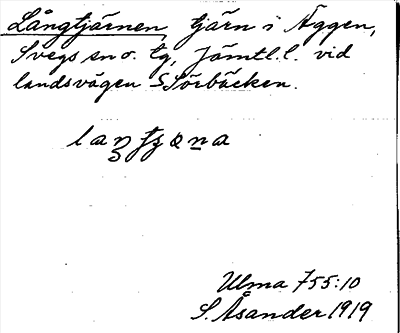 Långtjärnen, tjärn i Äggen,
Svegs sn o. tg, Jämtl. l. vid
landsvägen S Sörbäcken.
Ulma 755:10
S. Åsander 1919